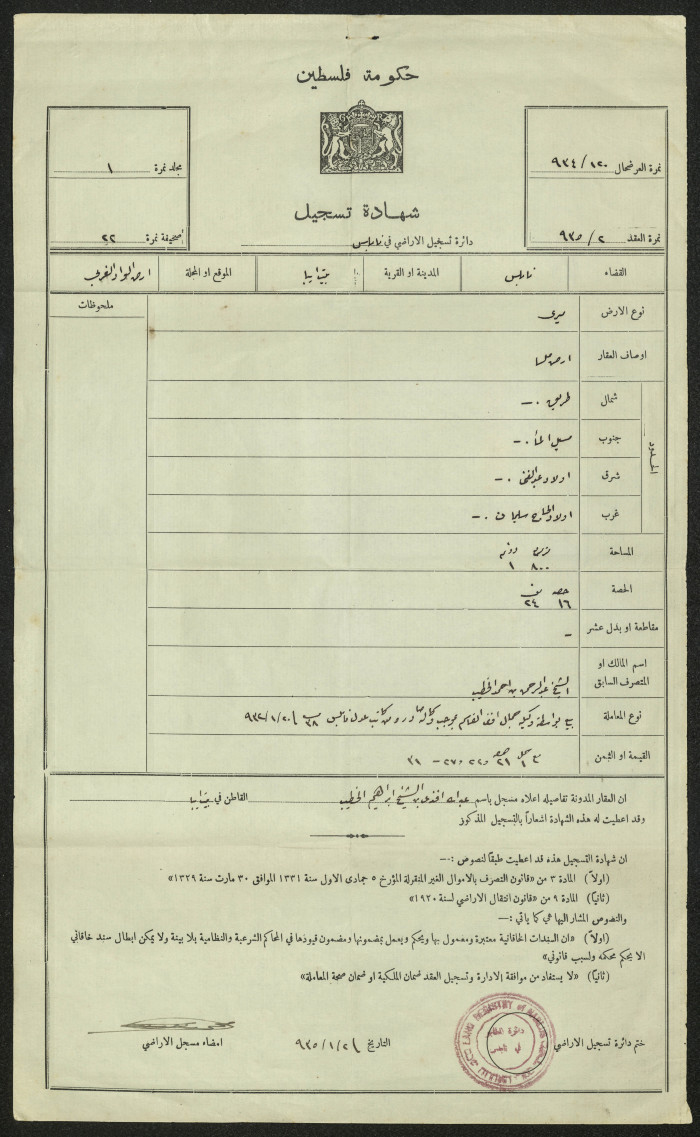 حكومة فلسطين
نمرة العرضحال ١٢٠/٩٣٤
مجلد نمرة ١
شهادة تسجيل
نمرة العقد ٢/٩٣٥
صحيفة نمرة ٢٢
دائرة تسجيل الاراضي في نابلس
القضاء نابلس المدينة او القرية بيت ايبا الموقع او المحلة ارض الواد الغربي
نوع الارض ميري
ملحوظات
اوصاف العقار ارض ملسا
الحدود
شمال طريق ٠—
جنوب مسيل الماء ٠—
شرق اولاد عبد الغني ٠—
غرب اولاد الحاج سليمان ٠—
المساحة دونم
٨٠٠ ١
الحصة حصه من
١٦ ٢٤
مقاطعة او بدل عشر —
اسم المالك او المتصرف السابق الشيخ عبد الرحمن بن احمد الخطيب
نوع المعاملة بيع بواسطة وكيله جمال افندي القاسم بموجب وكالة صادره من كاتب عدل نابلس ٣٨
القيمة او الثمن
ان العقار المدونة تفاصيله اعلاه مسجل باسم عبد الله افندي بن الشيخ ابراهيم الخطيب القاطن في بيت ايبا
وقد اعطيت له هذه الشهادة اشعاراً بالتسجيل المذكور
ان شهادة التسجيل هذه قد اعطيت طبقاً لنصوص :—
(اولاً) المادة ٣ من «قانون التصرف بالاموال الغير المنقولة المؤرخ ٥ جمادى الاول سنة ١٣٣١ الموافق ٣٠ مارت سنة ١٣٢٩»
(ثانياً) المادة ٩ من «قانون انتقال الاراضي لسنة ١٩٢٠»
والنصوص المشار اليها هي كما يأتي :—
(اولاً) «ان السندات الخاقانية معتبرة ومعمول بها ويحكم ويعمل بمضمونها ومضمون قيودها في المحاكم الشرعية والنظامية بلا بينة ولا يمكن ابطال سند خاقاني
الا بحكم محكمه ولسبب قانوني»
(ثانياً) «لا يستفاد من موافقة الادارة وتسجيل العقد ضمان الملكية او ضمان صحة المعاملة»
LAND REGISTRY OF NABLUS
ختم دائرة تسجيل الاراضي
التاريخ
امضاء مسجل الاراضي